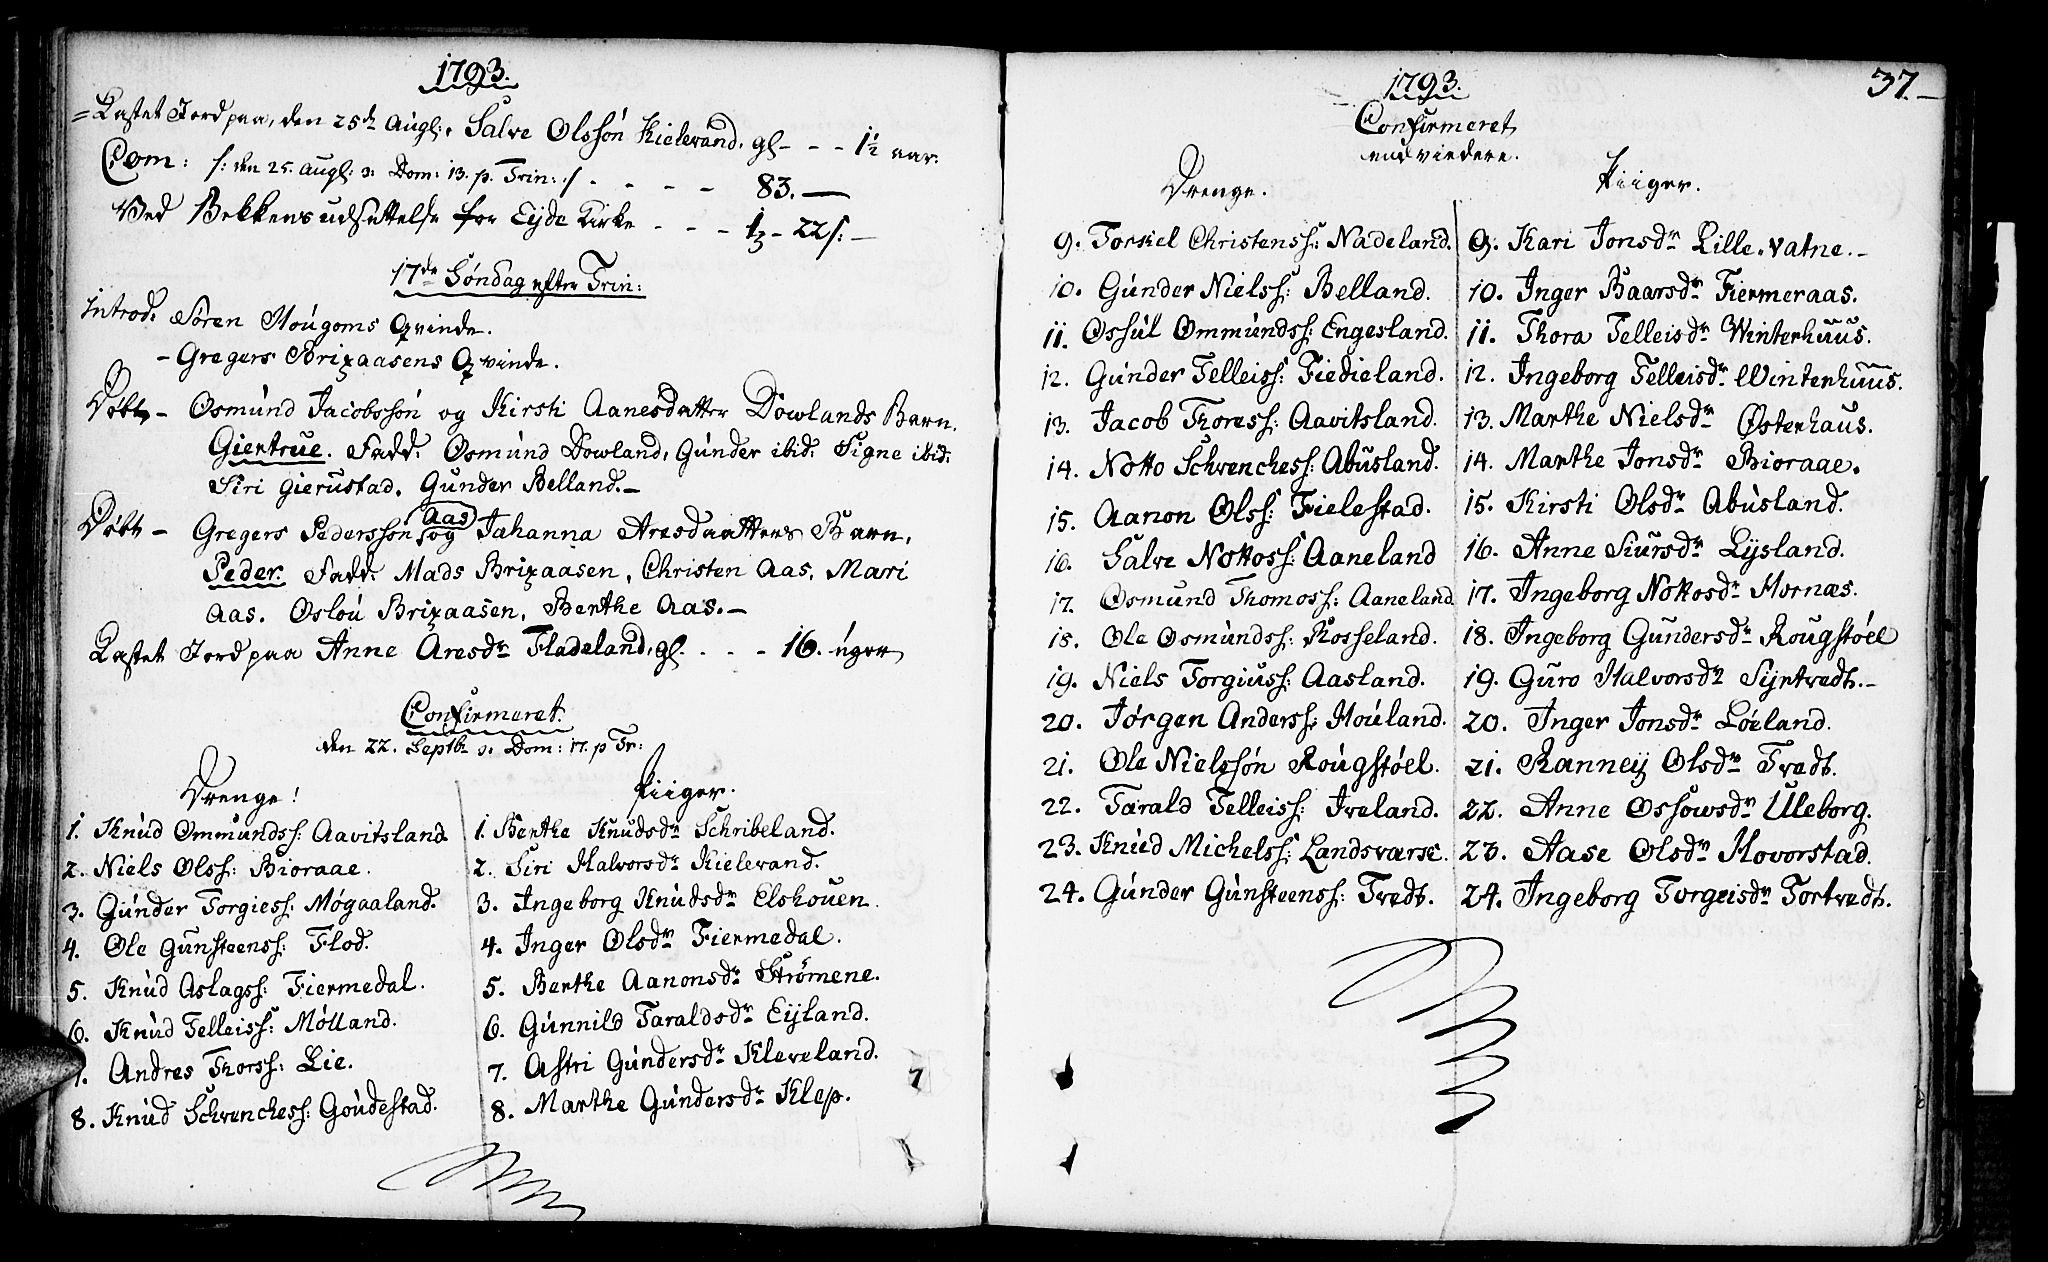 1793.
= Kastet Jord paa, den 25de Augl: Salve Olssøn Kielevand. gl - - - 1½ aar.
Com: /: den 25. Augl: ɔ: Dom: 13. p. Trin: :/ - - - - 83. —
Ved Bekkens udsættelse for Eyde Kirke - - - 22 s: —
17de Søndag efter Trin:
Introd: Søren Hougoms Qvinde.
- Gregers Brixaasens Qvinde.
Døbt - Osmund Jacobssøn og Kirsti Aanesdatter Dowlands Barn.
Giertrue. Fadd: Osmund Dowland, Gunder ibid: Signe ibid:
Siri Gierustad. Gunder Belland. -
Døbt - Gregers Pederssøn Aas og Johanna Aresdaatters Barn,
Peder. Fadd: Mads Brixaasen, Christen Aas, Mari
Aas. Oslou Brixaasen, Berthe Aas. -
Kastet Jord paa Anne Aresdr Fladeland, gl. - - - 16. uger
Confirmeret.
den 22. Septbr ɔ: Dom: 17. p Tr:
Drenge!
1. Knud Ommundss: Aavitsland
2. Niels Olss: Bioraae.
3. Gunder Torgiess: Møgaaland.
4. Ole Gunsteenss: Flod.
5. Knud Aslagss: Fiermedal.
6. Knud Telleiss: Mølland.
7. Andres Thorss: Lie.
8. Knud Schrenchess: Goudestad.
Piiger.
1. Berthe Knudsdr Schribeland.
2. Siri Halvorsdr Kielevand.
3. Ingeborg Knudsdr Elskouen.
4. Inger Olsdr Fiermedal.
5. Berthe Aanonsdr Strømene.
6. Gunnild Taraldsdr Eyland.
7. Astri Gundersdr Kleveland.
8. Marthe Gundersdr Klep.
37. -
1793.
Confirmeret
end viedere.
Drenge.
9. Torkel Christenss: Nadeland.
10. Gunder Nielss: Belland.
11. Ossul Ommundss: Engesland.
12. Gunder Telleiss: Fiedieland.
13. Jacob Toress: Aavitsland.
14. Notto Schrenchess: Abusland.
15. Aanon Olss: Fielestad.
16. Salve Nottoss: Aaneland
17. Osmund Thomoss: Aaneland
18. Ole Osmundss: Kosseland.
19. Niels Torgiuss: Aasland.
20. Jørgen Anderss: Houland.
21. Ole Nielssøn Rougstøel.
22. Tarald Telleiss: Iveland.
23. Knud Michelss: Landsværk.
24. Gunder Gunsteenss: Tredt.
Piiger.
9. Kari Jonsdr Lille-vatne. -
10. Inger Baarsdr Fiermeraas.
11. Thora Telleisdr Winterhuus.
12. Ingeborg Telleisdr Winterhuus.
13. Marthe Nielsdr Østerhaus.
14. Marthe Jonsdr Bioraae.
15. Kirsti Olsdr Abusland.
16. Anne Siursdr Lysland.
17. Ingeborg Nottosdr Hornæs.
18. Ingeborg Gundersdr Rougstøel
19. Guro Halvorsdr Syrtredt. -
20. Inger Jonsdr Løeland.
21. Ranney Olsdr Tredt.
22. Anne Ossowsdr Uleborg.
23. Aase Olsdr Hovorstad.
24. Ingeborg Torgeisdr Tortredt.